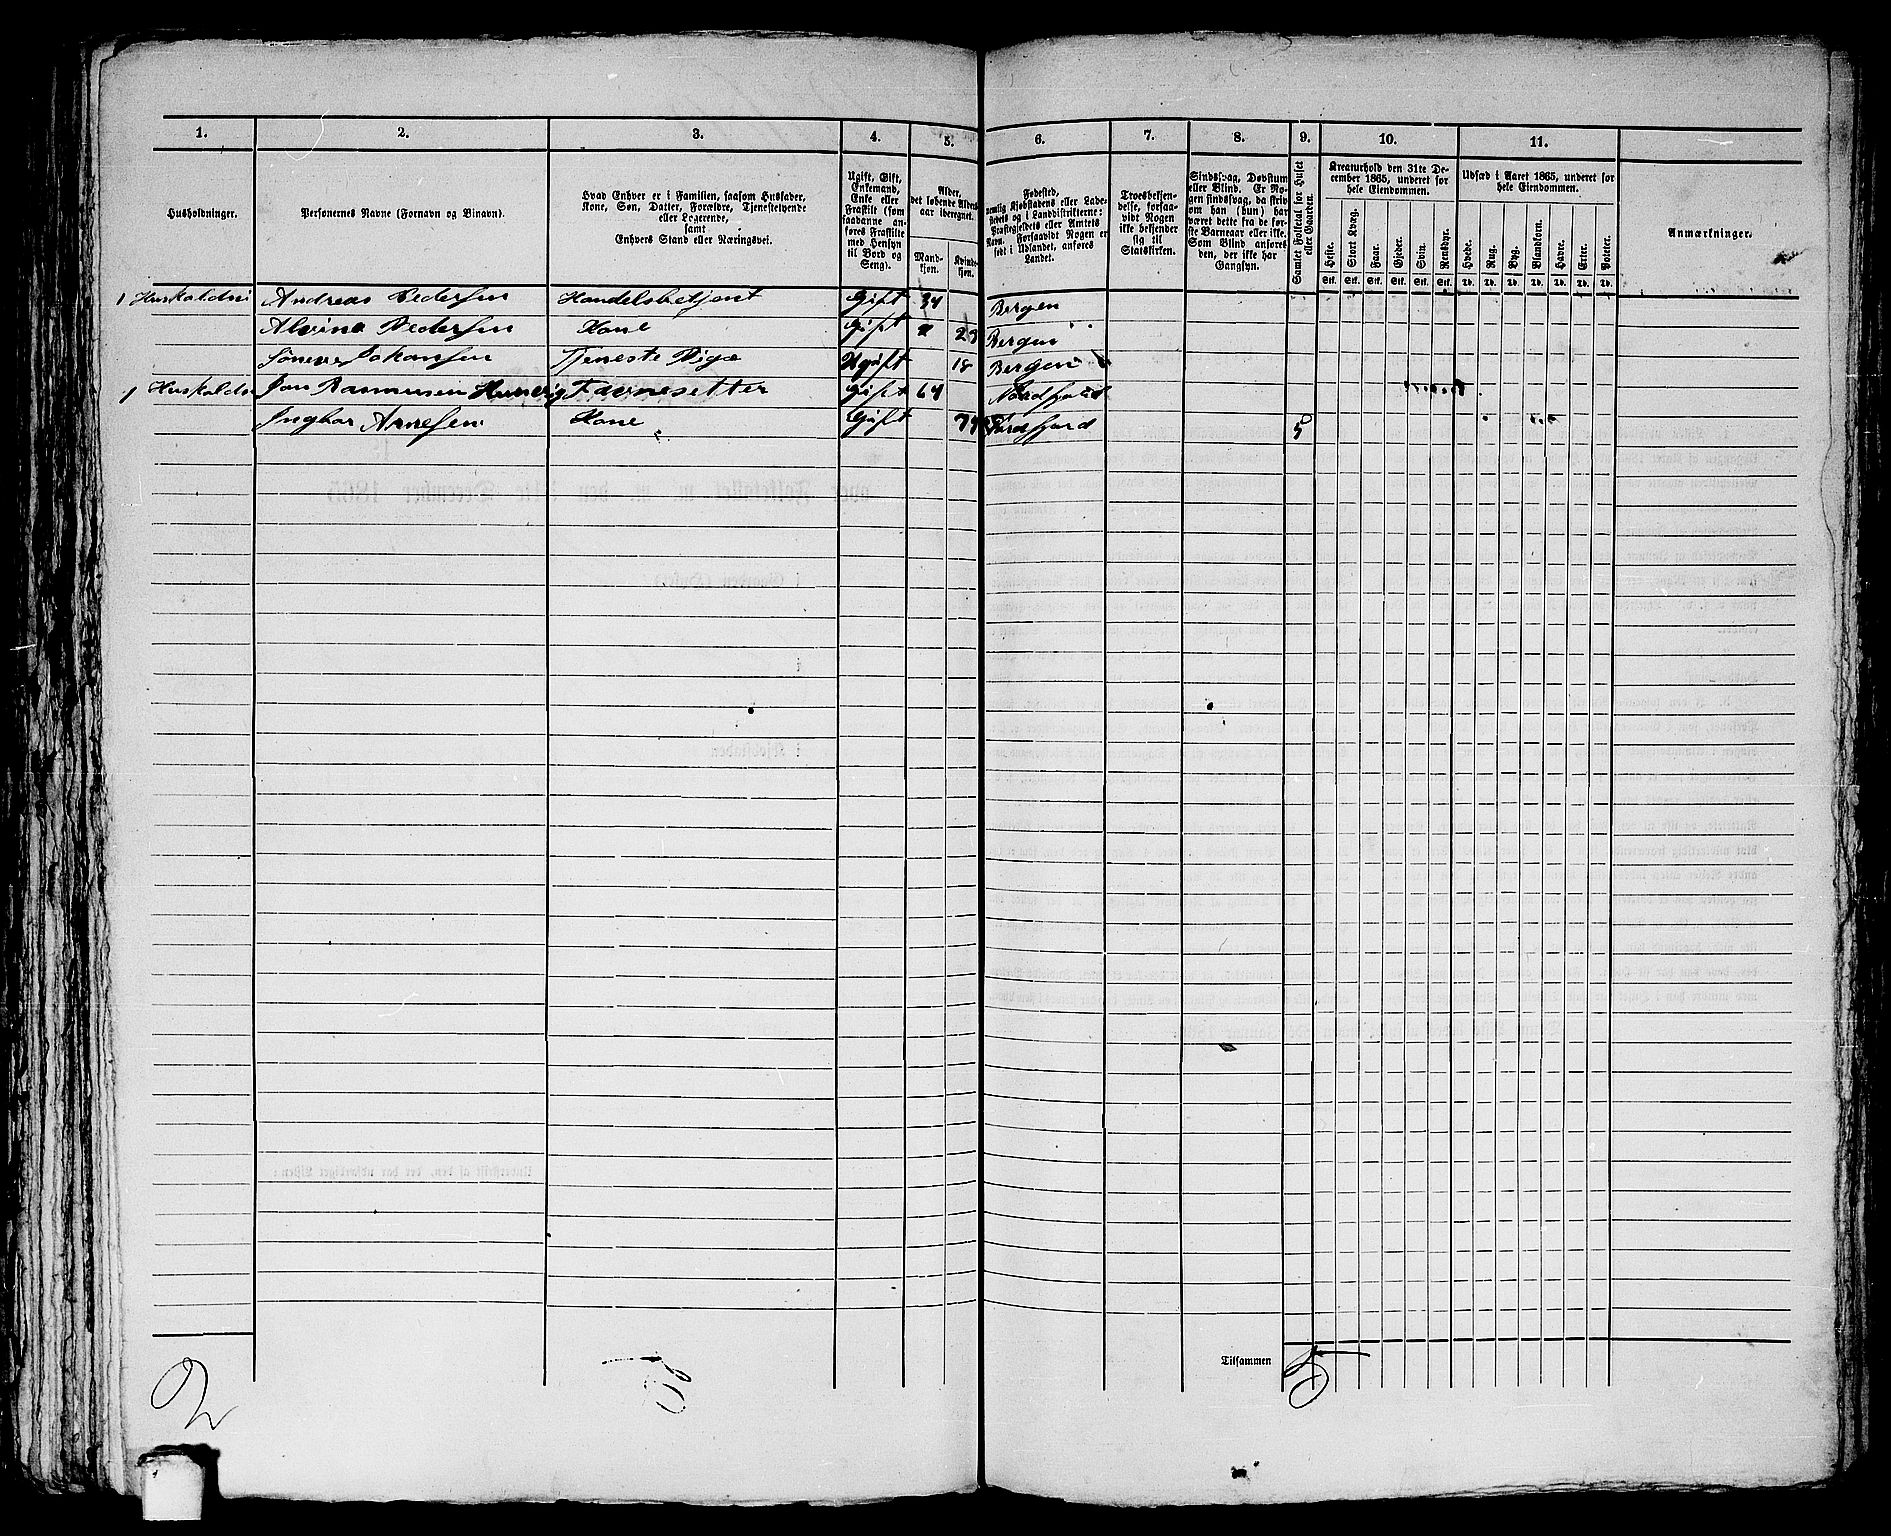 1. 2. 3. 4. 5. 6. 7. 8. 9. 10. 11.
Husholdninger.
Personernes Navne (Fornavn og Binavn).
Hvad Enhver er i Familien, saasom Husfader,
Kone, Søn, Datter, Forældre, Tjenestetyende
eller Logerende,
samt
Enhvers Stand eller Næringsvei.
Ugift, Gift,
Enkemand,
Enke eller
Fraskilt (som
saadanne an-
føres Fraskilte
med Hensyn
til Bord og
Seng).
Alder,
det løbende Alders-
aar iberegnet.
Mand-
kjøn.
Kvinde-
kjøn.
Fødested,
nemlig Kjøbstadens eller Lade-
stedets og i Landdistrikterne:
Præstegjeldets eller Amtets
Navn. Forsaavidt Nogen er
født i Udlandet, anføres
Landet.
Troesbekjen-
delse, forsaa-
vidt Nogen
ikke bekjender
sig til
Statskirken.
Sindssvag, Døvstum
eller Blind. Er No-
gen sindssvag, da skriv
om han (hun) har
været dette fra de før-
ste Barneaar eller ikke.
Som Blind anføres
den, der ikke har
Gangsyn.
Samlet Folketal for Huset
eller Gaarden.
Kreaturhold den 31te De-
cember 1865, underet for
hele Eiendommen.
Heste. Stort Kvæg. Faar. Gjeder. Svin. Rensdyr.
Stk. Stk. Stk. Stk. Stk. Stk.
Udsæd i Aaret 1865, underet for
hele Eiendommen.
Hvede. Rug. Byg. Blandkorn. Havre. Erter. Poteter.
Td. Td. Td. Td. Td. Td. Td.
Anmærkninger.
1 Andreas Pedersen Handelsbetjent Gift 34 Bergen
Alvina Pedersen Kone Gift Bergen
Johansen Tjeneste Pige Ugift 18 Bergen
1 Jon Rasmusen Gift 64 Nordfjord
Arnesen Kone Gift 5
Tilsammen 5
2